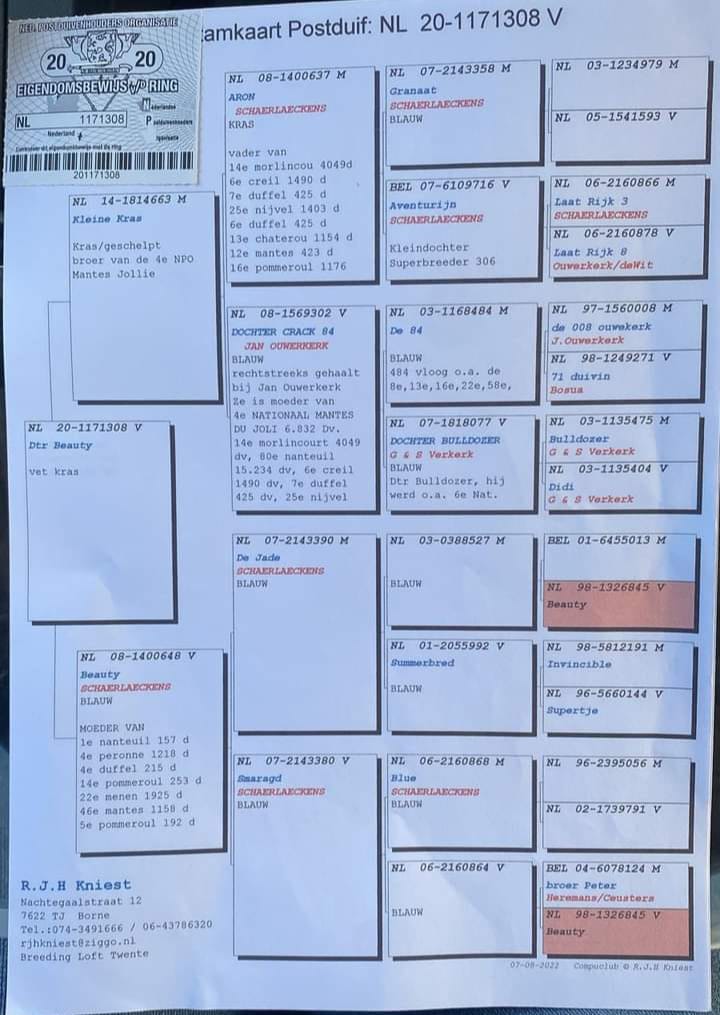 NED. POSTDUIVENHOUDERS ORGANISATIE
20 20
EIGENDOMSBEWIJS v/d RING
NL 1171308
Nederland
201171308
tamkaart Postduif: NL 20-1171308 V
NL 14-1814663 M
Kleine Kras
Kras/geschelpt
broer van de 4e NPO
Mantes Jollie
NL 20-1171308 V
Dtr Beauty
vet kras
NL 08-1400648 V
Beauty
SCHAERLAECKENS
BLAUW
MOEDER VAN
1e nanteuil 157 d
4e peronne 1218 d
4e duffel 215 d
14e pommeroul 253 d
22e menen 1925 d
46e mantes 1158 d
5e pommeroul 192 d
NL 08-1400637 M
ARON
SCHAERLAECKENS
KRAS
vader van
14e morlincou 4049d
6e creil 1490 d
7e duffel 425 d
25e nijvel 1403 d
6e duffel 425 d
13e chaterou 1154 d
12e mantes 423 d
16e pommeroul 1176
NL 08-1569302 V
DOCHTER CRACK 84
JAN OUWERKERK
BLAUW
rechtstreeks gehaalt
bij Jan Ouwerkerk
Ze is moeder van
4e NATIONAAL MANTES
DU JOLI 6.832 Dv.
14e morlincourt 4049
dv, 80e nanteuil
15.234 dv, 6e creil
1490 dv, 7e duffel
425 dv, 25e nijvel
NL 07-2143390 M
De Jade
SCHAERLAECKENS
BLAUW
NL 07-2143380 V
Smaragd
SCHAERLAECKENS
BLAUW
NL 07-2143358 M
Granaat
SCHAERLAECKENS
BLAUW
BEL 07-6109716 V
Aventurijn
SCHAERLAECKENS
Kleindochter
Superbreeder 306
NL 03-1168484 M
De 84
BLAUW
484 vloog o.a. de
8e,13e,16e,22e,58e,
NL 07-1818077 V
DOCHTER BULLDOZER
G & S Verkerk
BLAUW
Dtr Bulldozer, hij
werd o.a. 6e Nat.
NL 03-0388527 M
BLAUW
NL 01-2055992 V
Summerbred
BLAUW
NL 06-2160868 M
Blue
SCHAERLAECKENS
BLAUW
NL 06-2160864 V
BLAUW
NL 03-1234979 M
NL 05-1541593 V
NL 06-2160866 M
Laat Rijk 3
SCHAERLAECKENS
NL 06-2160878 V
Laat Rijk 8
Ouwerkerk/deWit
NL 97-1560008 M
de 008 ouwekerk
J.Ouwerkerk
NL 98-1249271 V
71 duivin
Bosua
NL 03-1135475 M
Bulldozer
G & S Verkerk
NL 03-1135404 V
Didi
G & S Verkerk
BEL 01-6455013 M
NL 98-1326845 V
Beauty
NL 98-5812191 M
Invincible
NL 96-5660144 V
Supertje
NL 96-2395056 M
NL 02-1739791 V
BEL 04-6078124 M
broer Peter
Heremans/Ceusters
NL 98-1326845 V
Beauty
R.J.H Kniest
Nachtegaalstraat 12
7622 TJ Borne
Tel.:074-3491666 / 06-43786320
rjhkniest@ziggo.nl
Breeding Loft Twente
07-08-2022 Compuclub © R.J.H Kniest